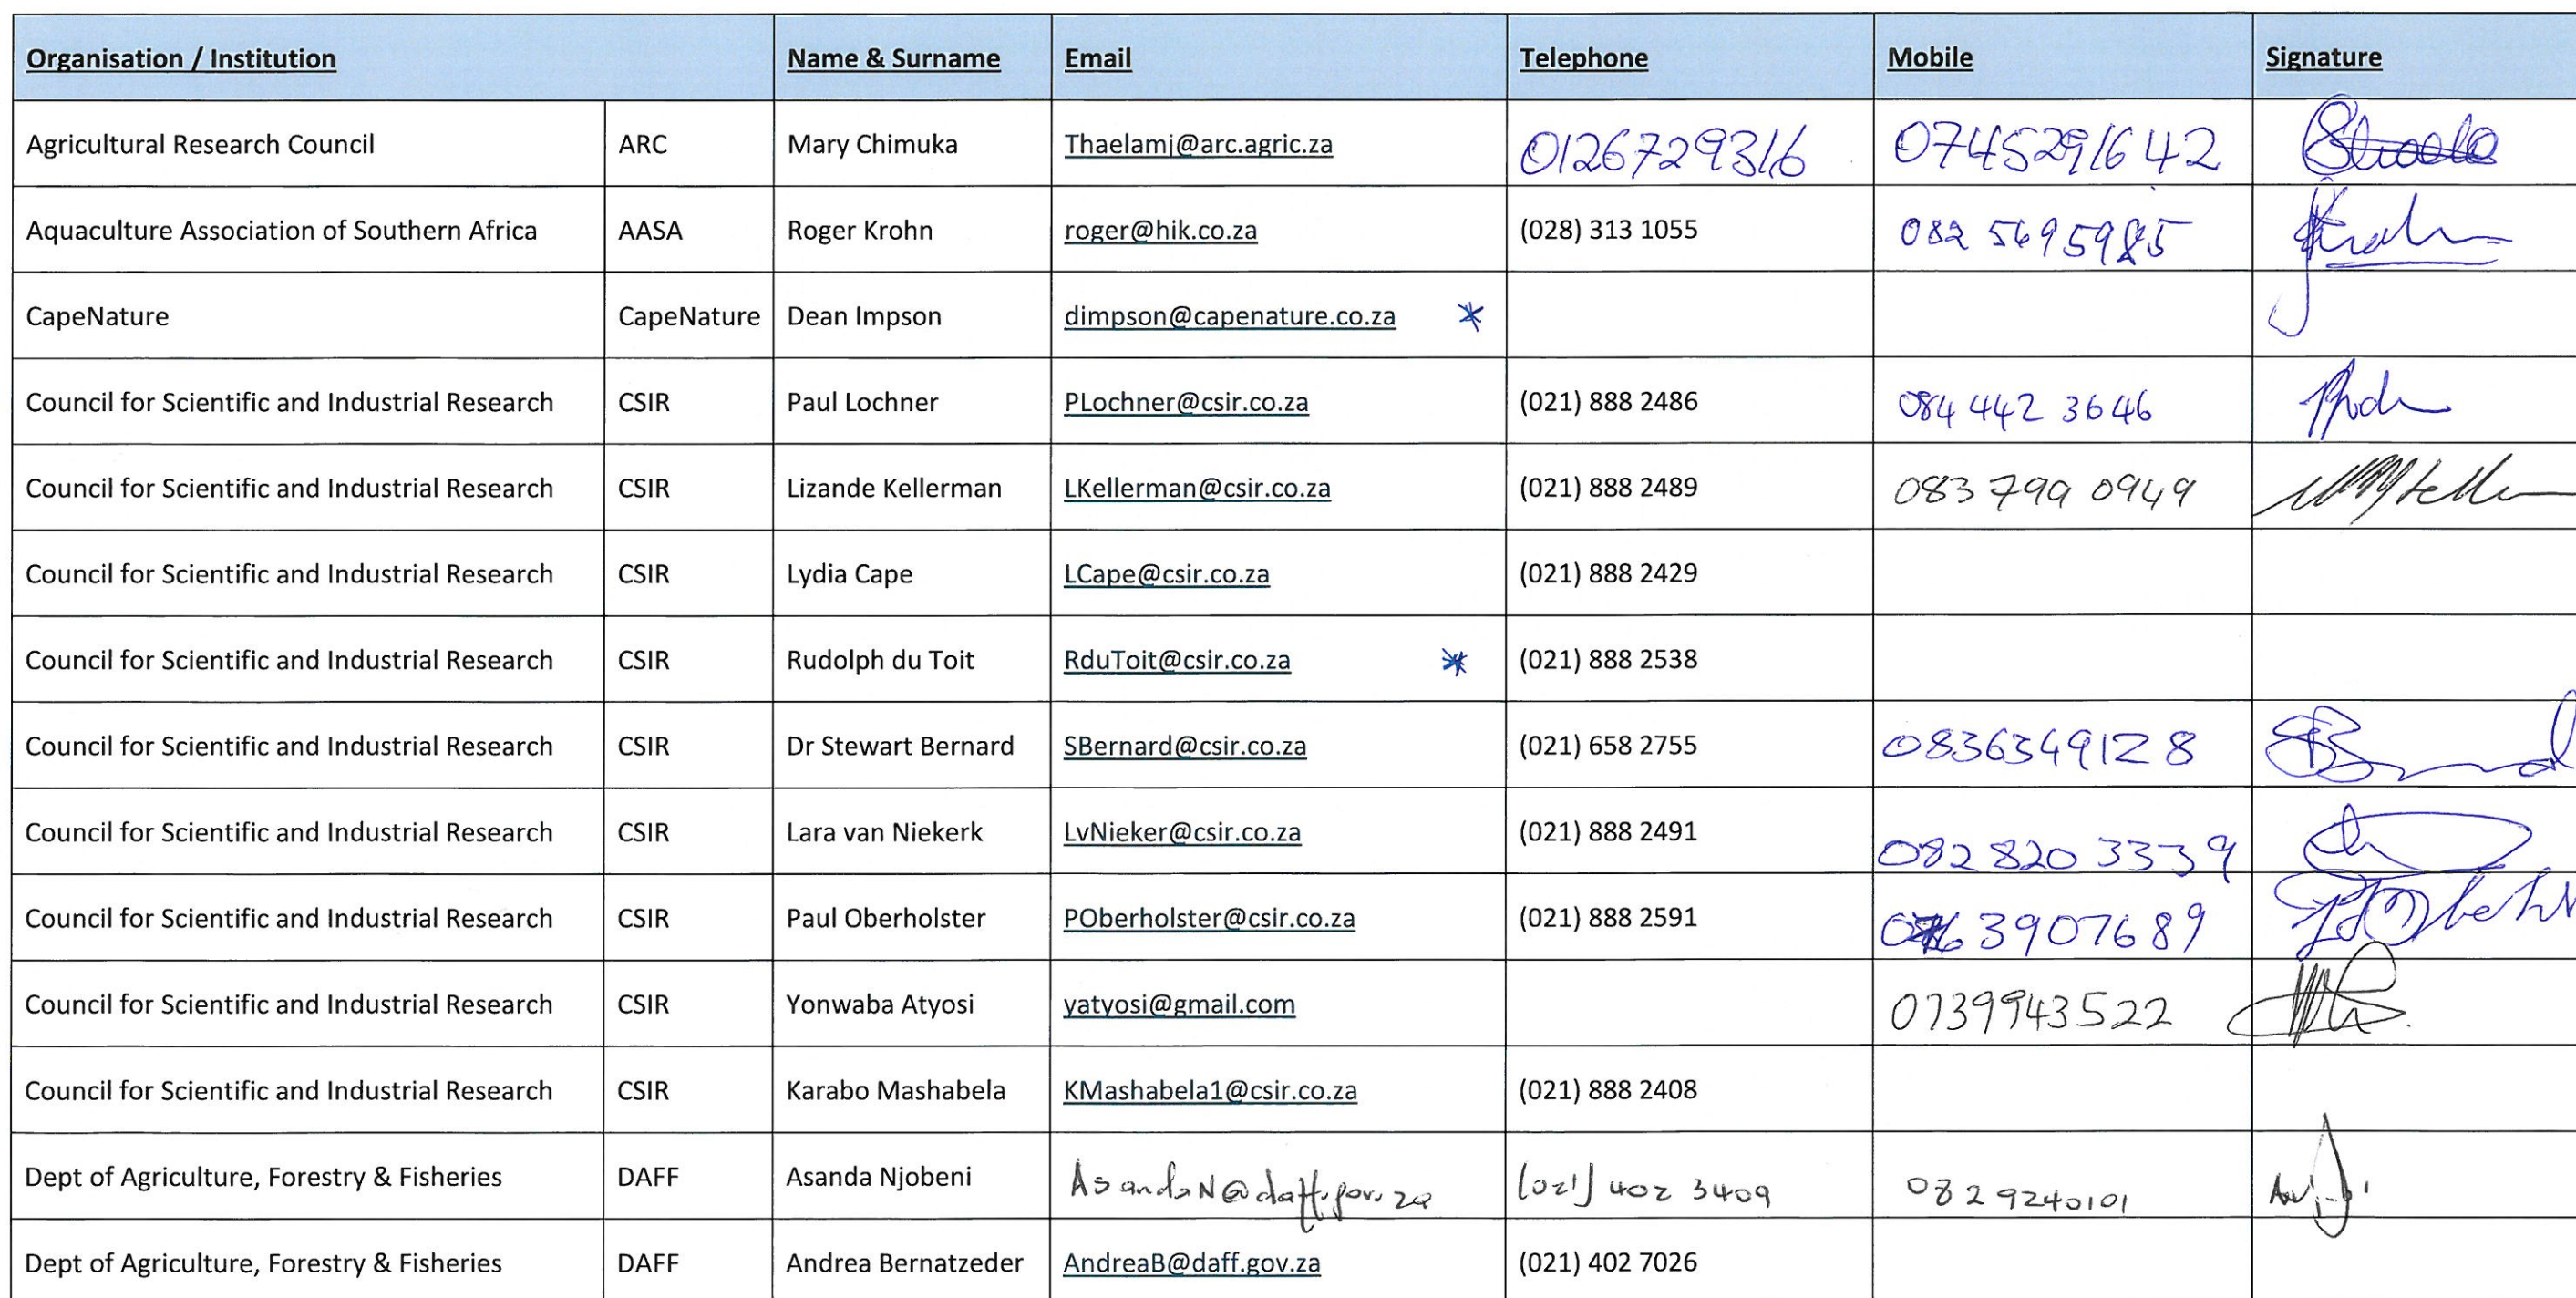 Organisation / Institution Name & Surname Email Telephone Mobile Signature
Agricultural Research Council ARC Mary Chimuka Thaelamj@arc.agric.za 0126729316 0745291642
Aquaculture Association of Southern Africa AASA Roger Krohn roger@hik.co.za (028) 313 1055 082 5695985
CapeNature CapeNature Dean Impson dimpson@capenature.co.za *
Council for Scientific and Industrial Research CSIR Paul Lochner PLochner@csir.co.za (021) 888 2486 084 442 3646
Council for Scientific and Industrial Research CSIR Lizande Kellerman LKellerman@csir.co.za (021) 888 2489 083 799 0949
Council for Scientific and Industrial Research CSIR Lydia Cape LCape@csir.co.za (021) 888 2429
Council for Scientific and Industrial Research CSIR Rudolph du Toit RduToit@csir.co.za * (021) 888 2538
Council for Scientific and Industrial Research CSIR Dr Stewart Bernard SBernard@csir.co.za (021) 658 2755 0836349128
Council for Scientific and Industrial Research CSIR Lara van Niekerk LvNieker@csir.co.za (021) 888 2491 082 820 3339
Council for Scientific and Industrial Research CSIR Paul Oberholster POberholster@csir.co.za (021) 888 2591 3907689
Council for Scientific and Industrial Research CSIR Yonwaba Atyosi yatyosi@gmail.com 0739943522
Council for Scientific and Industrial Research CSIR Karabo Mashabela KMashabela1@csir.co.za (021) 888 2408
Dept of Agriculture, Forestry & Fisheries DAFF Asanda Njobeni AsandaN@daff.gov.za (021) 402 3409 082 9240101
Dept of Agriculture, Forestry & Fisheries DAFF Andrea Bernatzeder AndreaB@daff.gov.za (021) 402 7026